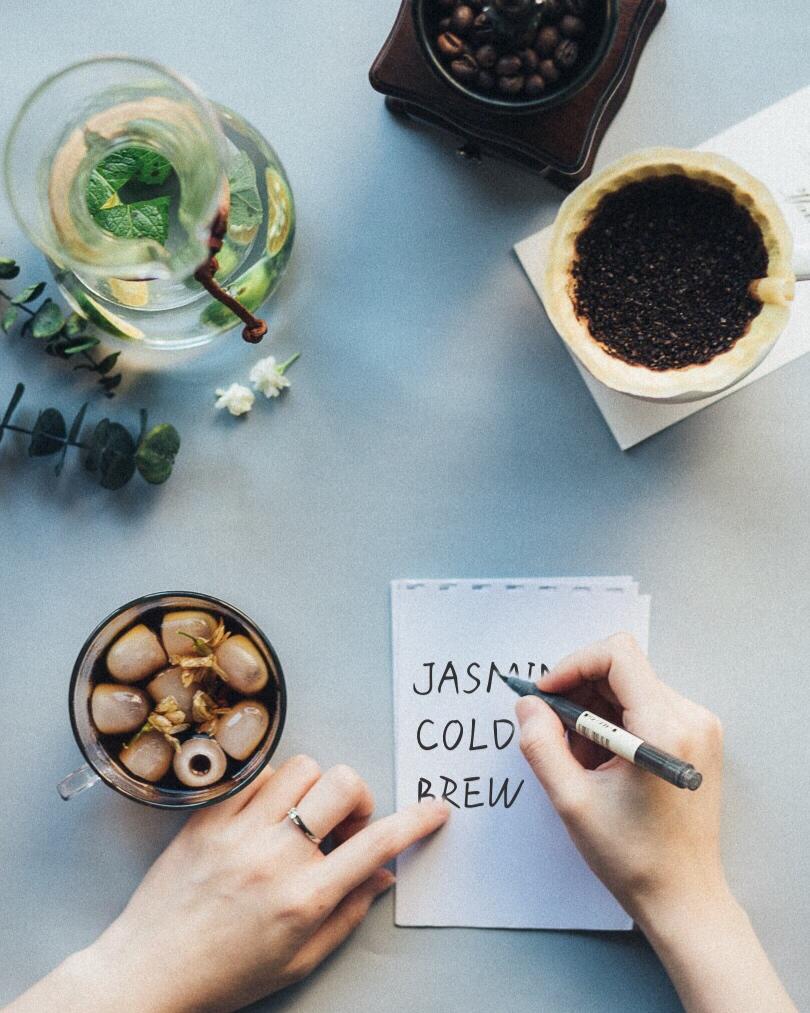 JASMIN
COLD
BREW